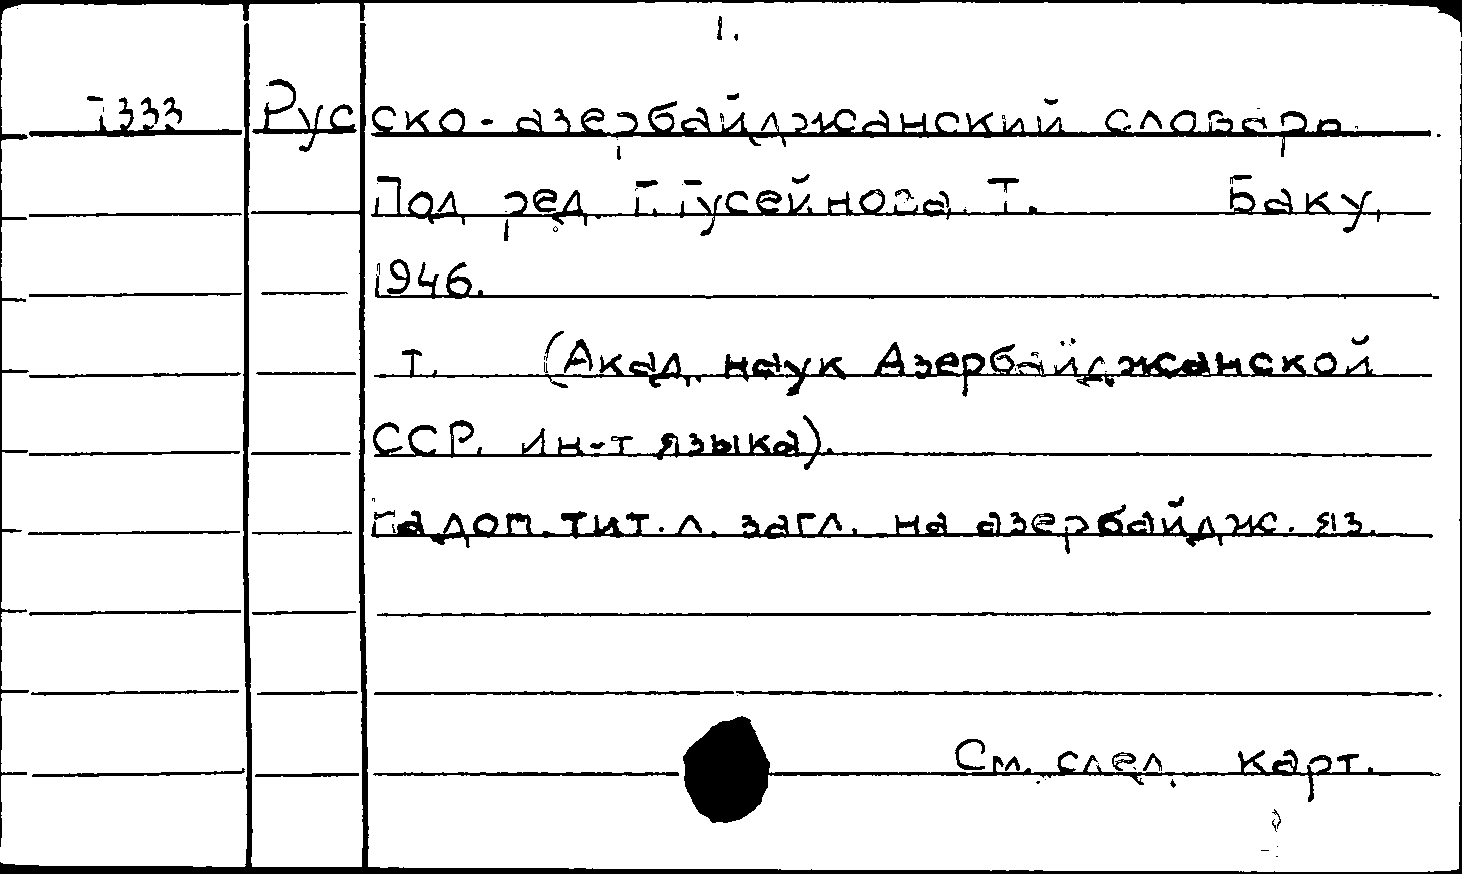 1.
7333 Русско-азербайджанский словарь
Под ред. Г. Гусейнова. Т. Баку,
1946.
т. (Акад. наук Азербайджанской
ССР. Ин-т языка).
На доп. тит. л. загл. на азербайдж. яз.
См. след. карт.